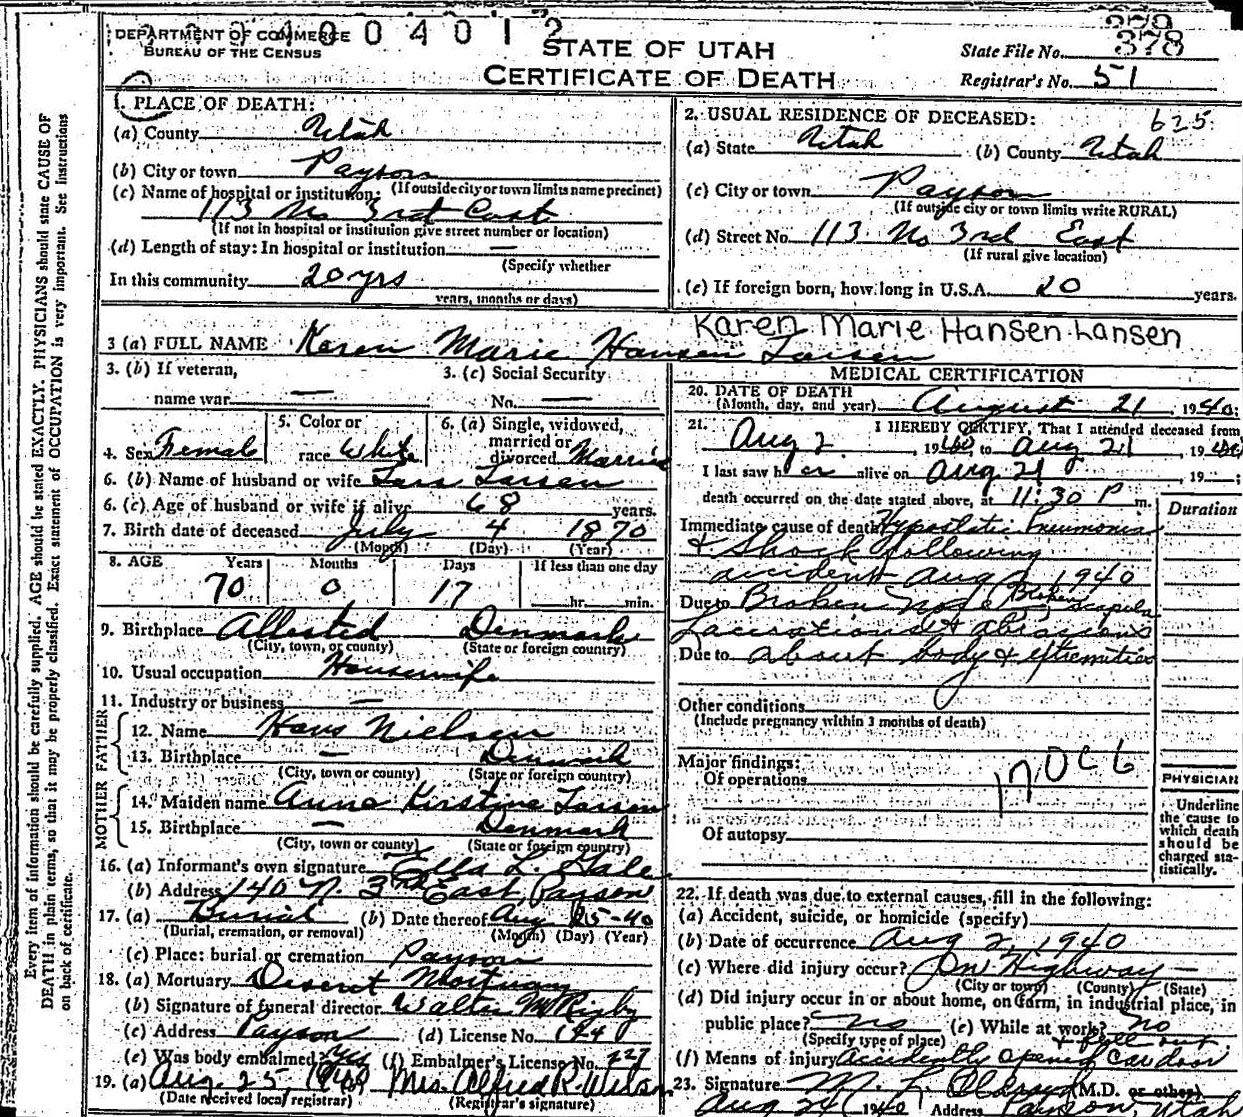 DEPARTMENT OF COMMERCE
BUREAU OF THE CENSUS
4004012
STATE OF UTAH
CERTIFICATE OF DEATH
State File No. 378
Registrar's No. 51
Every item of information should be carefully supplied. AGE should be stated EXACTLY. PHYSICIANS should state CAUSE OF
DEATH in plain terms, so that it may be properly classified. Exact statement of OCCUPATION is very important. See Instructions
on back of certificate.
1. PLACE OF DEATH:
(a) County Utah
(b) City or town Payson
(If outside city or town limits name precinct)
(c) Name of hospital or institution:
113 No 3rd East
(If not in hospital or institution give street number or location)
(d) Length of stay: In hospital or institution —
(Specify whether
In this community 20 yrs
years, months or days)
2. USUAL RESIDENCE OF DECEASED: 625
(a) State Utah (b) County Utah
(c) City or town Payson
(If outside city or town limits write RURAL)
(d) Street No. 113 No 3rd East
(If rural give location)
(e) If foreign born, how long in U.S.A. 20 years.
Karen Marie Hansen Lansen
3 (a) FULL NAME Karen Marie Hansen Larsen
3. (b) If veteran,
name war —
3. (c) Social Security
No. —
4. Sex Female
5. Color or
race White
6. (a) Single, widowed,
married or
divorced Married
6. (b) Name of husband or wife Lars Larsen
6. (c) Age of husband or wife if alive 68 years.
7. Birth date of deceased July 4 1870
(Month) (Day) (Year)
8. AGE Years Months Days If less than one day
70 0 17 hr. min.
9. Birthplace Allested Denmark
(City, town, or county) (State or foreign country)
10. Usual occupation Housewife
11. Industry or business —
FATHER
12. Name Hans Nielsen
13. Birthplace — Denmark
(City, town or county) (State or foreign country)
MOTHER
14. Maiden name Anna Kirstine Larsen
15. Birthplace — Denmark
(City, town or county) (State or foreign country)
16. (a) Informant's own signature Ella L. Gale
(b) Address 140 N. 3rd East, Payson
17. (a) Burial (b) Date thereof Aug 25-40
(Burial, cremation, or removal) (Month) (Day) (Year)
(c) Place: burial or cremation Payson
18. (a) Mortuary Deseret Mortuary
(b) Signature of funeral director Walter M Rigby
(c) Address Payson (d) License No. 124
(e) Was body embalmed? Yes (f) Embalmer's License No. 227
19. (a) Aug. 25, 1940 Mrs. Alfred R. Wilson
(Date received local registrar) (Registrar's signature)
MEDICAL CERTIFICATION
20. DATE OF DEATH
(Month, day, and year) August 21, 1940;
21. I HEREBY CERTIFY, That I attended deceased from
Aug 2, 1940, to Aug 21, 1940
I last saw h er alive on Aug 21, 19 ;
death occurred on the date stated above, at 11:30 P m.
Duration
Immediate cause of death Hypostatic Pneumonia
& Shock following
accident Aug 2, 1940
Due to Broken nose, Broken scapula
Lacerations & abrasions
Due to about body & extremities
Other conditions
(Include pregnancy within 3 months of death)
Major findings:
Of operations
170c6
Of autopsy
PHYSICIAN
Underline
the cause to
which death
should be
charged sta-
tistically.
22. If death was due to external causes, fill in the following:
(a) Accident, suicide, or homicide (specify)
(b) Date of occurrence Aug 2, 1940
(c) Where did injury occur? On Highway —
(City or town) (County) (State)
(d) Did injury occur in or about home, on farm, in industrial place, in
public place? no (e) While at work? no
(Specify type of place) & fell out
(f) Means of injury accidently opened car door
23. Signature M. L. (M.D. or other)
Aug 24, 1940 Address Payson, Utah